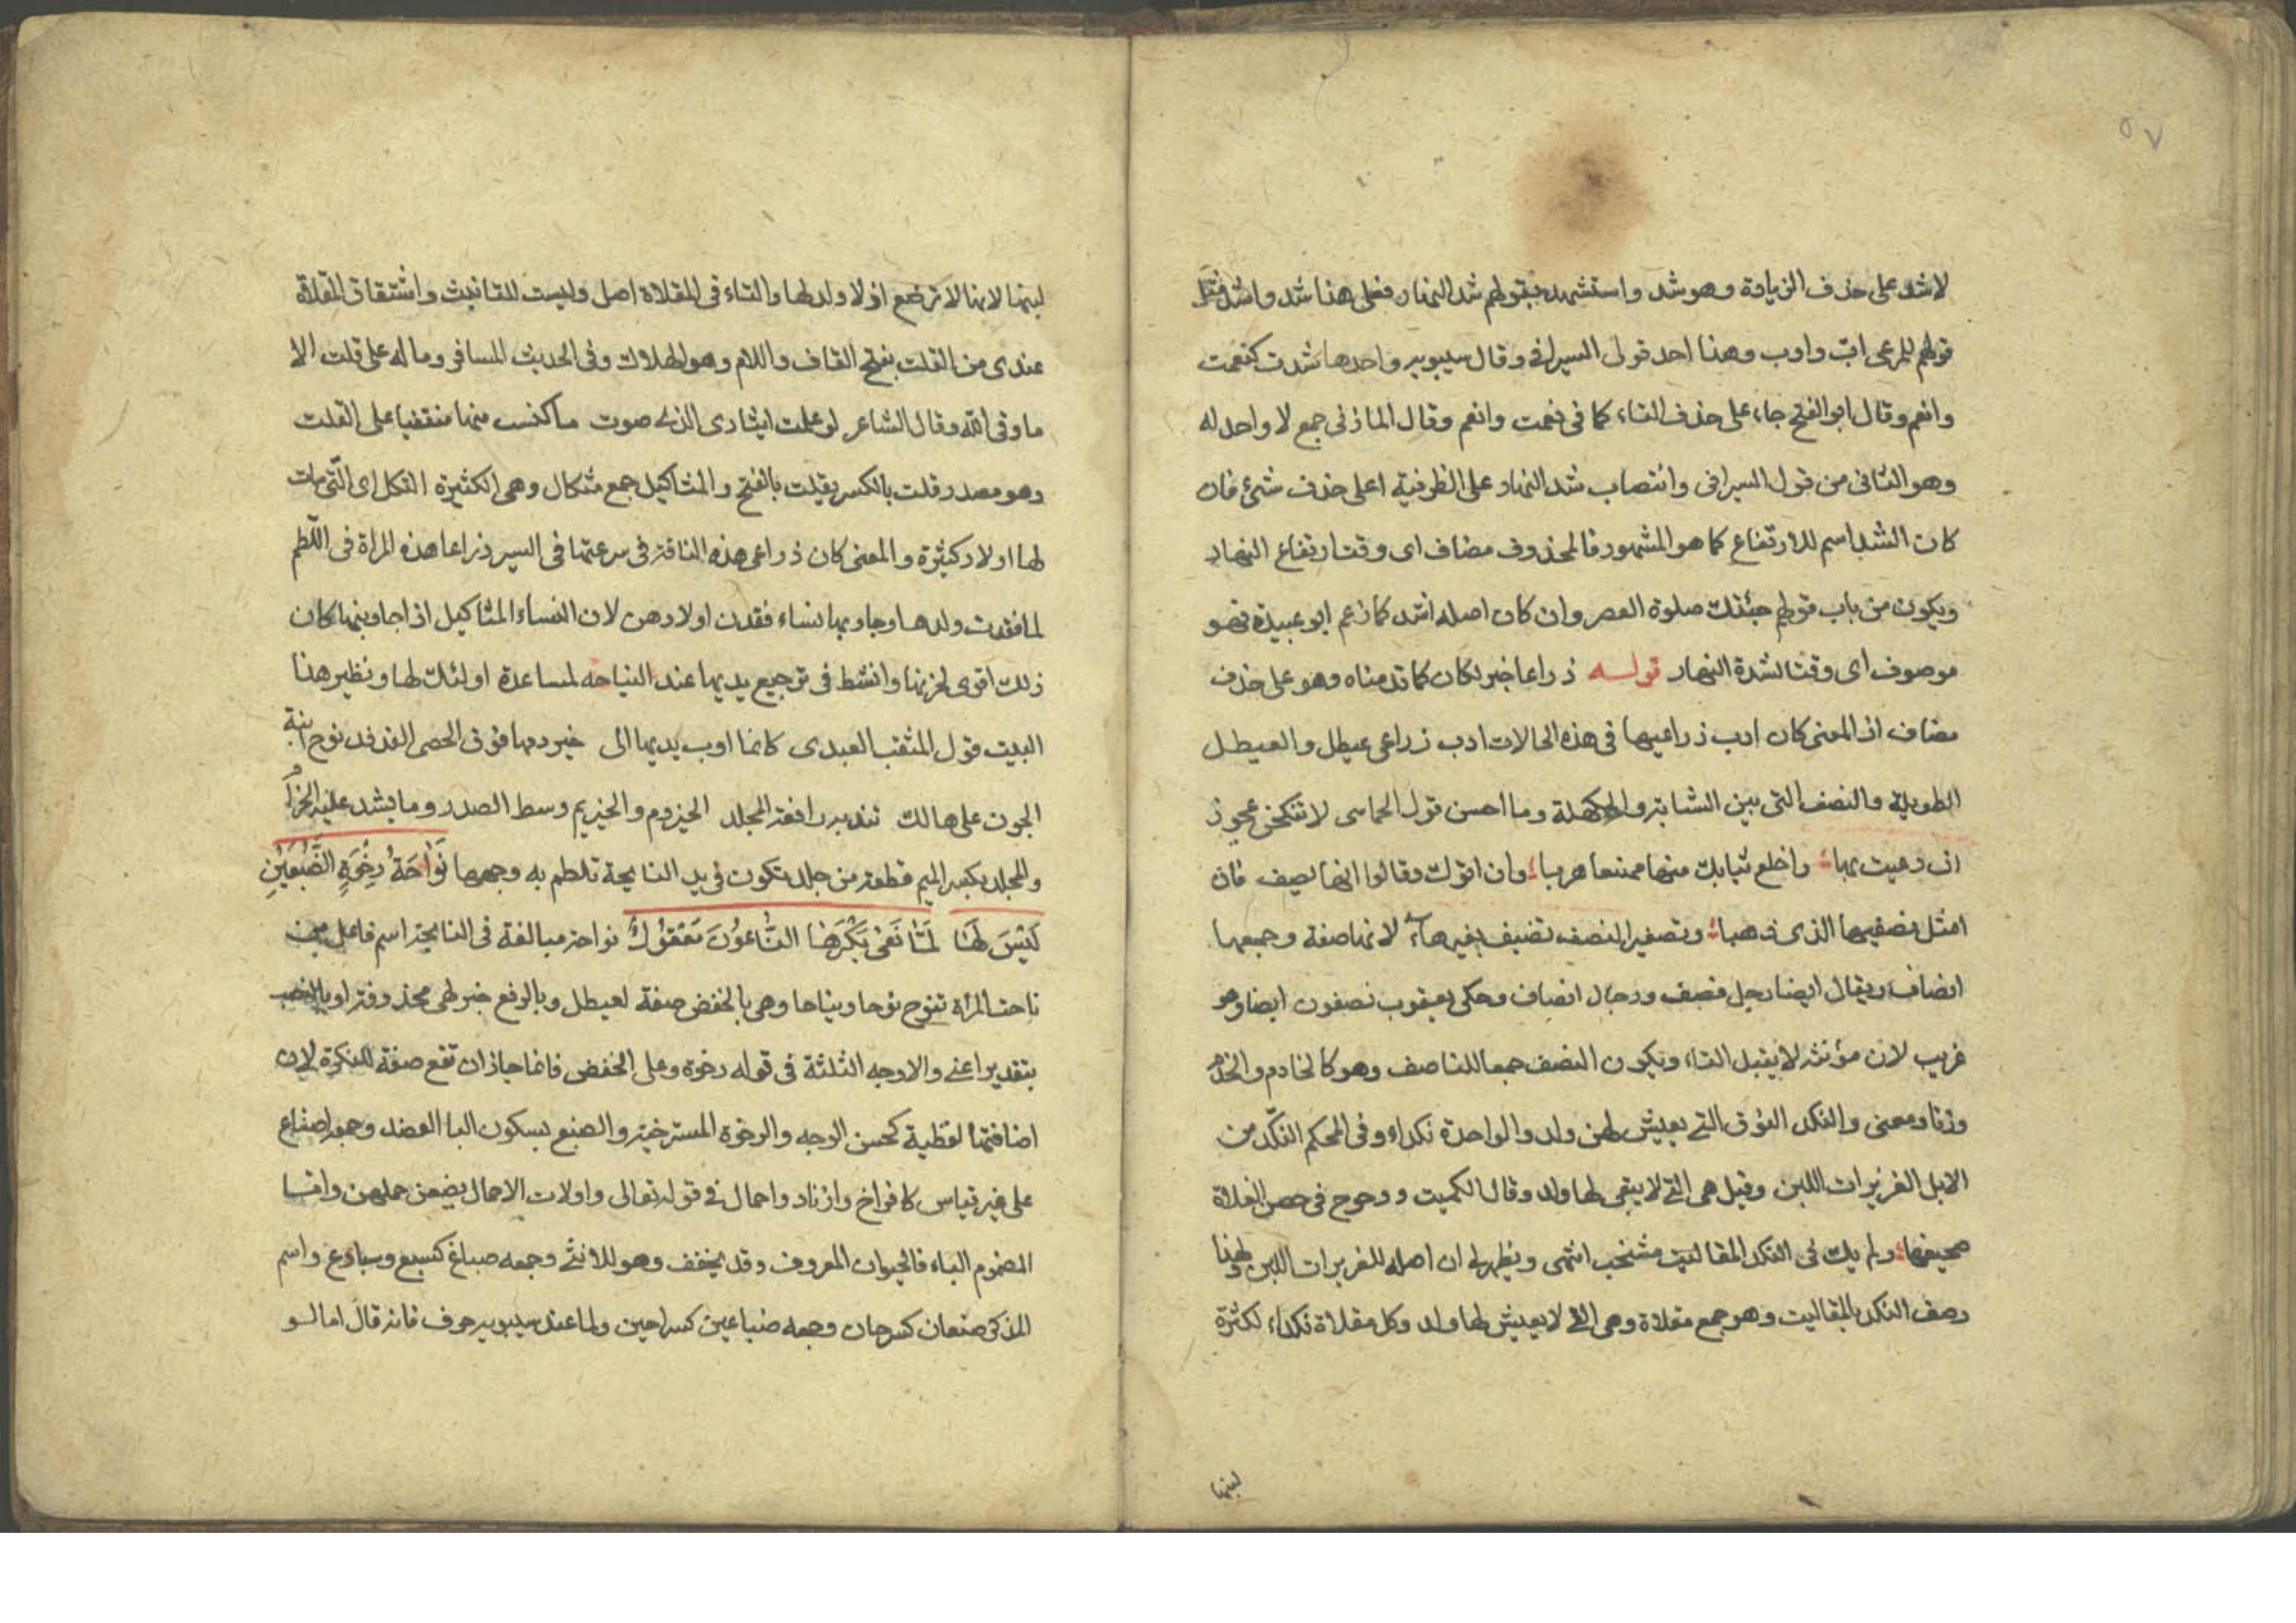 ٥٧
لاشد على حذف الزيادة وهو شد واستشهد بقولهم شد النهار فعلى هذا شد واشد مثل
قولهم للرعى اب واوب وهذا احد قولى السيرافى وقال سيبويه واحدها شدت كنعمت
وانعم وقال ابو الفتح جاء على حذف التاء كما فى نعمت وانعم وقال المازنى جمع لا واحد له
وهو الثانى من قول السيرافى وانتصاب شد النهار على الظرفية اعلى حذف شئ فان
كان الشد اسم للارتفاع كما هو المشهور فالمحذوف مضاف اى وقت ارتفاع النهار
ويكون من باب قولهم جئتك صلوة العصر وان كان اصله اشد كما زعم ابو عبيدة فهو
موصوف اى وقتا لشدة النهار قولـه ذراعا خبر لكان كما قدمناه وهو على حذف
مضاف اذ المعنى كان اوب ذراعيها فى هذه الحالات اوب ذراعى عيطل والعيطل
الطويلة والنصف التى بين الشابة والكهلة وما احسن قول الحماسى لا تنكحن عجوز
ان دعيت بها واخلع ثيابك منها ممنعا هربا وان اتوك وقالوا انها نصف فان
امثل نصفيها الذى ذهبا وتصغير النصف نضيف بغير هاء لانها صفة وجمعها
انصاف ويقال ايضا رجل نصف ورجال انصاف وحكى يعقوب نصفون ايضا وهو
غريب لان مؤنثه لا يقبل التاء ويكون النصف جمعا للناصف وهو كالخادم والخدم
وزنا ومعنى والنكد النوق التى يعيش لهن ولد والواحدة نكداء وفى المحكم النكد من
الابل الغزيرات اللبن وقيل هى التى لا يبقى لها ولد وقال الكميت ووحوح فى حضن الفلاة
ضجيعها ولم يك فى النكد المقاليت مشخب انتهى ويظهر لى ان اصله للغزيرات اللبن ولهذا
وصف النكد بالمقاليت وهو جمع مقلاة وهى التى لا يعيش لها ولد وكل مقلاة نكداء لكثرة
لبنها
لبنها لانها لا ترضع اذ لا ولد لها والتاء فى المقلاة اصل وليست للتانيث واشتقاق المقلاة
عندى من القلت بفتح القاف واللام وهو الهلاك وفى الحديث المسافر وماله على قلت الا
ما وقى الله وقال الشاعر لو علمت ايثارى الذى صوت ما كنت منها منقفيا على القلت
وهو مصدر قلت بالكسر يقلت بالفتح والمثاكيل جمع مثكال وهى الكثيرة الثكل اى التى مات
لها اولاد كثيرة والمعنى كان ذراعى هذه الناقة فى سرعتها فى السير ذراعا هذه المراة فى اللطم
لما فقدت ولدها وجاوبها نساء فقدن اولادهن لان النساء المثاكيل اذا جاوبنها كان
ذلك اقوى لحزنها وانشط فى ترجيع يديها عند النياحه لمساعدة اولئك لها ونظير هذا
البيت قول المثقب العبدى كانما اوب يديها الى حيزومها فوق الحصى الفدفد نوح ابنة
الجون على هالك تندبه رافعة المجلد الحيزوم والحزيم وسط الصدر وما يشد عليه الحزام
والمجلد بكسر الميم قطعة من جلد تكون فى يد النايحة تلطم به وجهها نَوَّاحَةٌ رِخْوَةُ الضَّبْعَيْنِ
لَيْسَ لَهَا لَمَّا نَعَى بَكْرَهَا النَّاعُونَ مَعْقُولُ نواحة مبالغة فى النايحة اسم فاعل من
ناحت المراة تنوح نوحا ونياحا وهى بالخفض صفة لعيطل وبالرفع خبر لهى محذوفة او بالنصب
بتقدير اعنى والاوجه الثلثة فى قوله رخوة وعلى الخفض فانما جاز ان تقع صفة للنكرة لان
اضافتها لفظية كحسن الوجه والرخوة المسترخية والضبع بسكون البا العضد وجمعه اضباع
على غير قياس كافراخ وازناد واحمال فى قوله تعالى واولات الاحمال يضعن حملهن واما
المضموم الباء فالحيوان المعروف وقد يخفف وهو للانثى وجمعه ضباع كسبع وسباع واسم
المذكر ضبعان كسرحان وجمعه ضباعين كسراحين ولما عند سيبويه حرف فانه قال اما لو